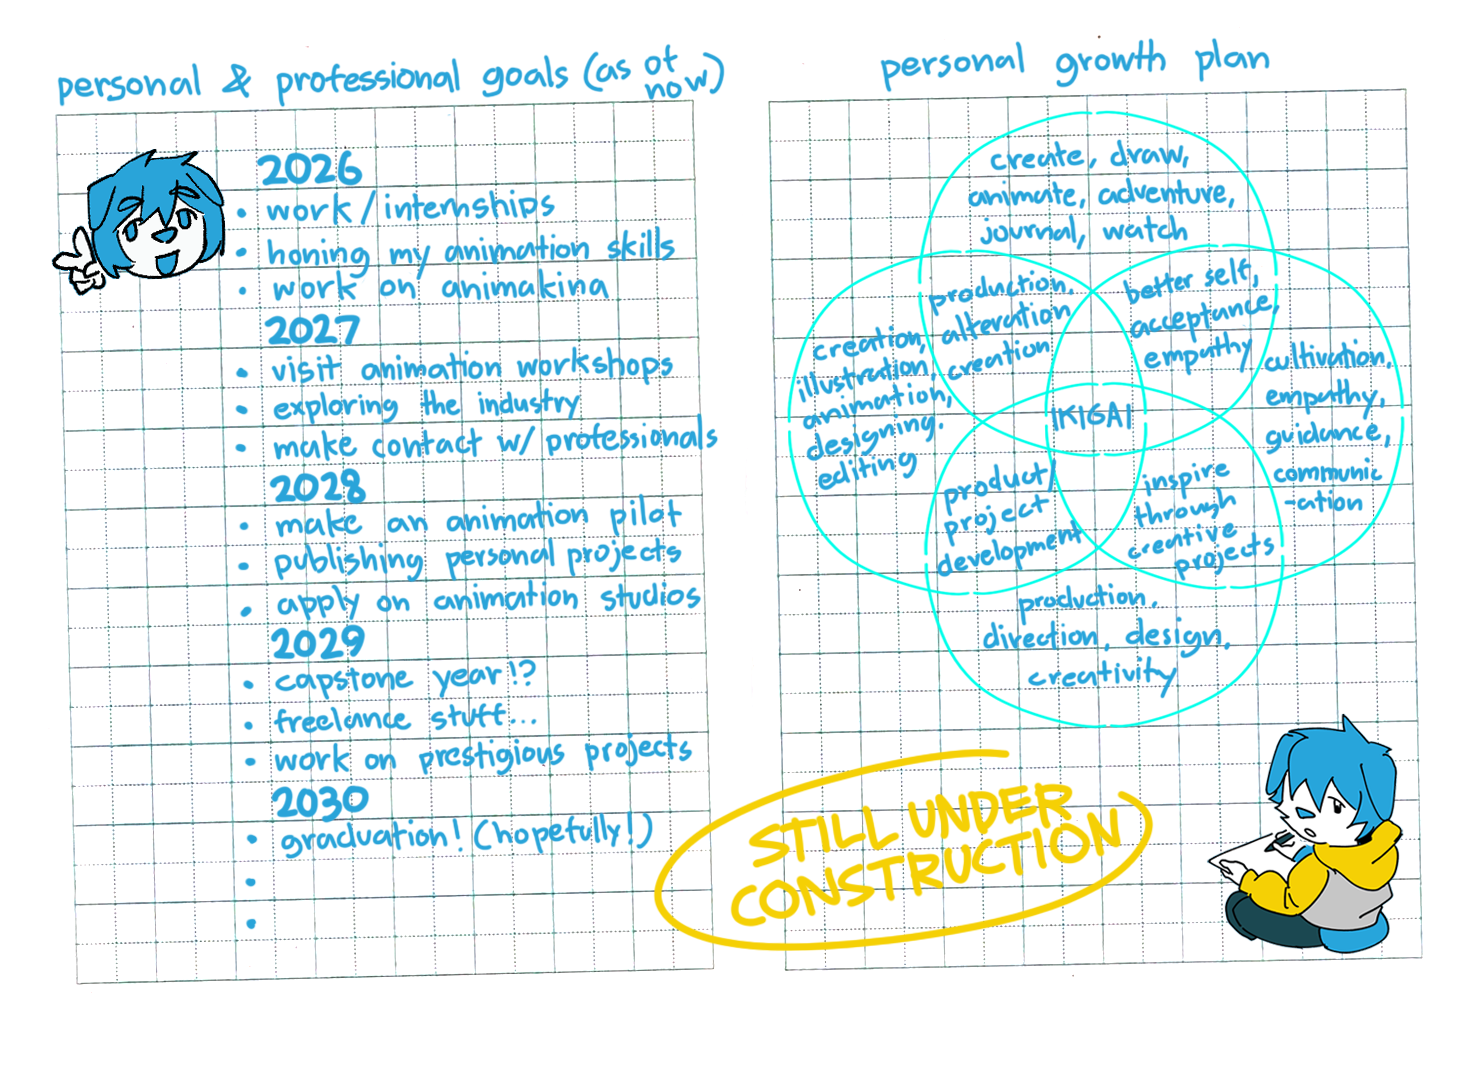 personal & professional goals (as of now)
2026
• work/internships
• honing my animation skills
• work on animakina
2027
• visit animation workshops
• exploring the industry
• make contact w/ professionals
2028
• make an animation pilot
• publishing personal projects
• apply on animation studios
2029
• capstone year!?
• freelance stuff...
• work on prestigious projects
2030
• graduation! (hopefully!)
•
•
personal growth plan
create, draw,
animate, adventure,
journal, watch
production,
alteration
creation
better self,
acceptance,
empathy
creation,
illustration,
animation,
designing.
editing
cultivation,
empathy,
guidance,
communic
-ation
IKIGAI
product/
project
development
inspire
through
creative
projects
production,
direction, design,
creativity
STILL UNDER
CONSTRUCTION